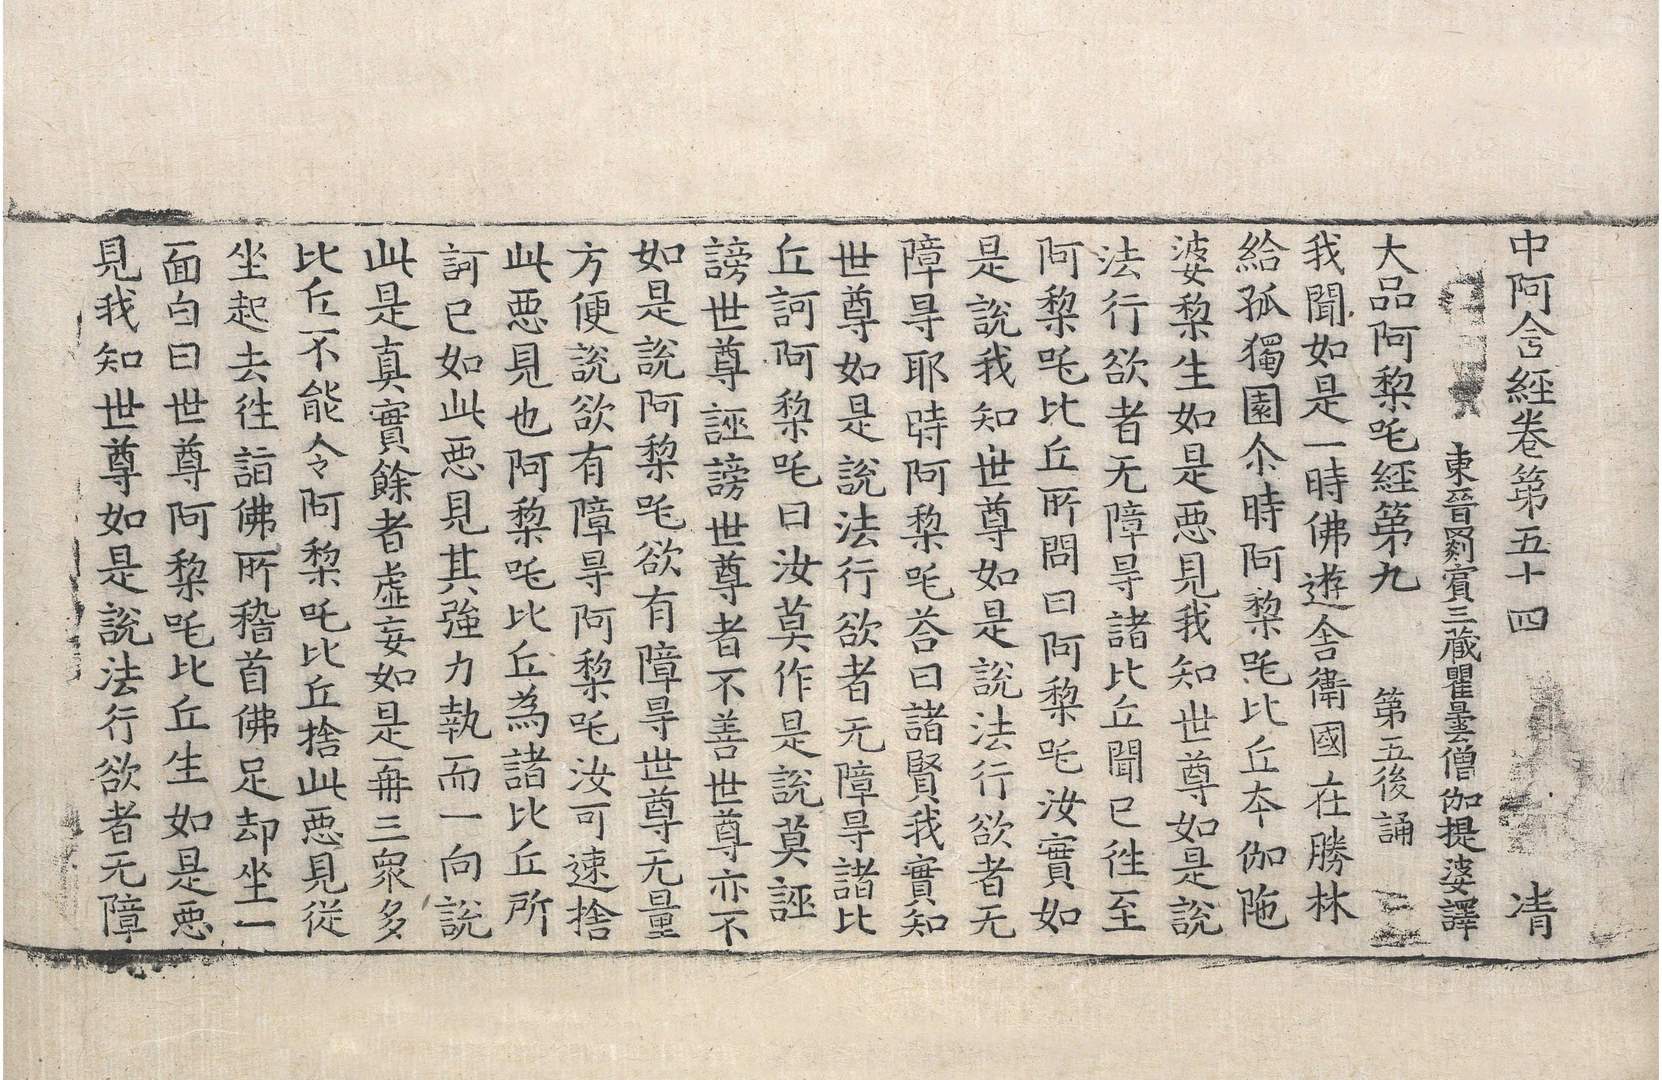 中阿含經卷第五十四 凊
東晉罽賓三藏瞿曇僧伽提婆譯
大品阿梨吒經第九 第五後誦
我聞如是一時佛遊舍衛國在勝林
給孤獨園尒時阿梨吒比丘夲伽陁
婆梨生如是惡見我知世尊如是說
法行欲者无障㝵諸比丘聞已徃至
阿梨吒比丘所問曰阿梨吒汝實如
是說我知世尊如是說法行欲者无
障㝵耶時阿梨吒荅曰諸賢我實知
世尊如是說法行欲者无障㝵諸比
丘訶阿梨吒曰汝莫作是說莫誣
謗世尊誣謗世尊者不善世尊亦不
如是說阿梨吒欲有障㝵世尊无量
方便說欲有障㝵阿梨吒汝可速捨
此惡見也阿梨吒比丘為諸比丘所
訶已如此惡見其強力執而一向說
此是真實餘者虛妄如是再三衆多
比丘不能令阿梨吒比丘捨此惡見從
坐起去徃詣佛所稽首佛足却坐一
面白曰世尊阿梨吒比丘生如是惡
見我知世尊如是說法行欲者无障